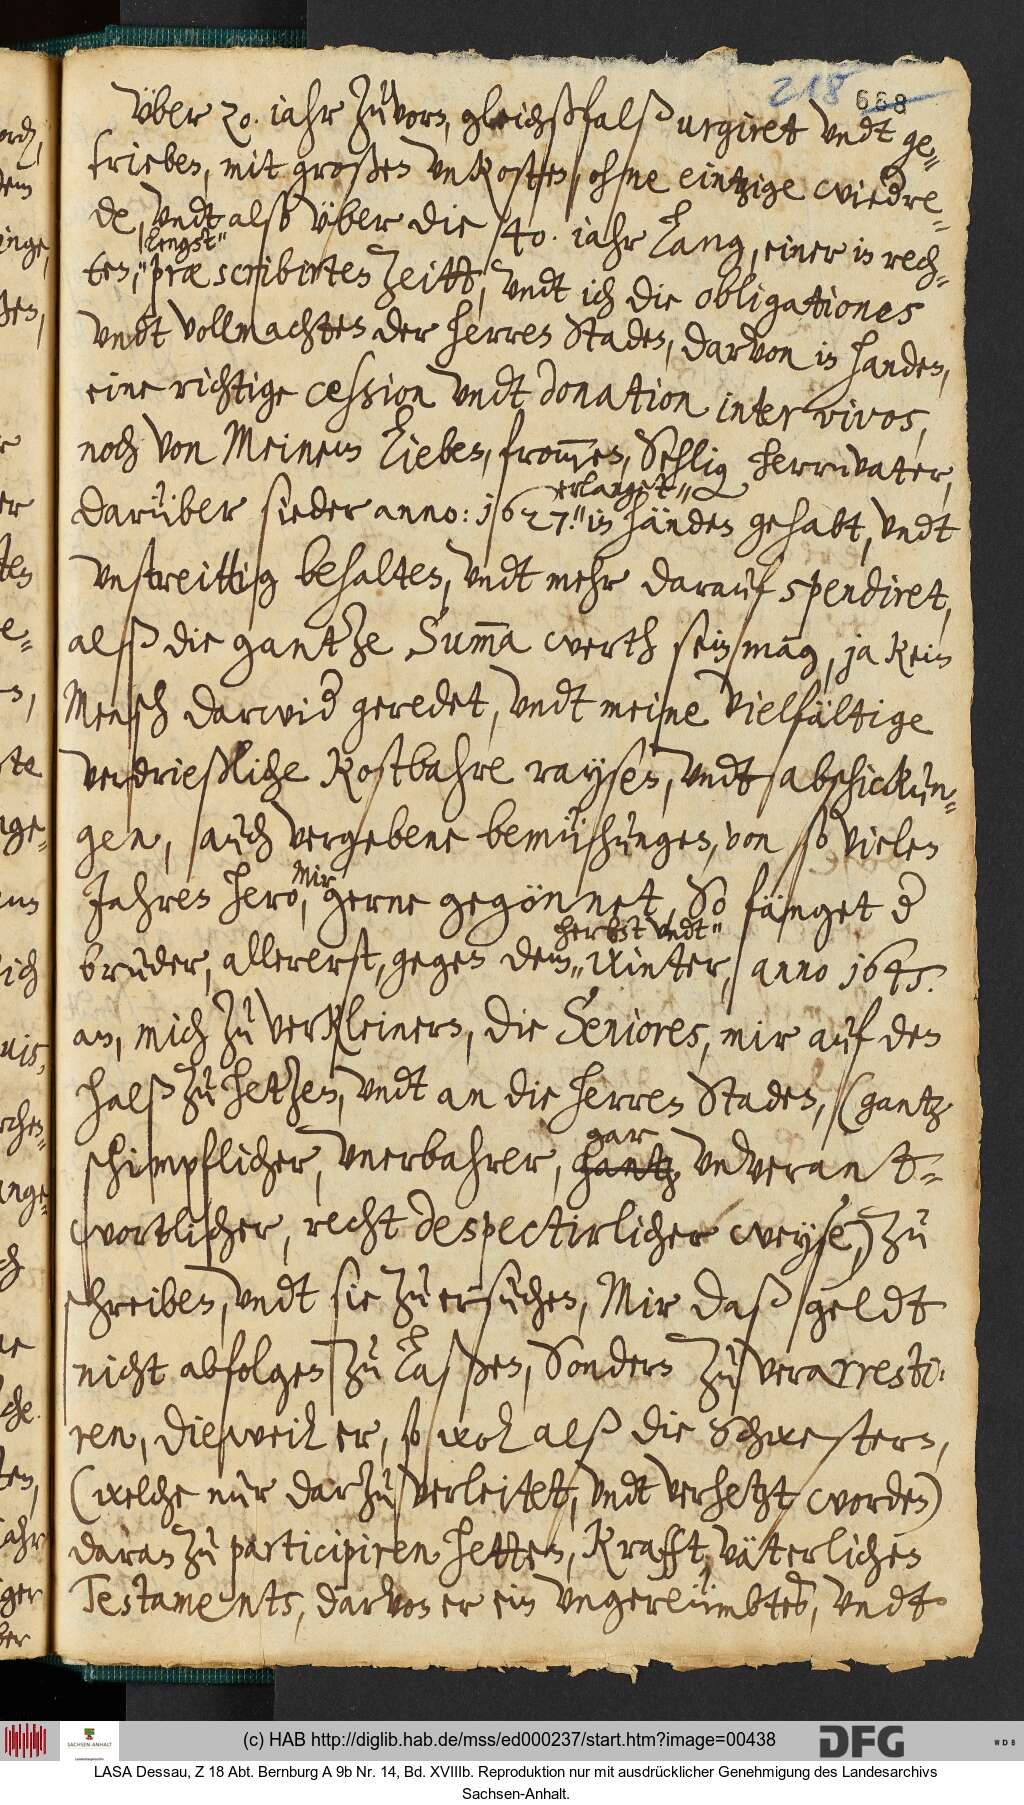 218 668
Vber 20. iahr zuvorn, gleichßfalß urgiret vndt ge-
trieben, mit großen vnkosten, ohne eintzige wiedre-
de, vndt alß vber die 40. iahr lang, einer in rech-
ten, "lengst" præscribirten zeitt, vndt ich die obligationes
vndt vollmachten der herren Staden, darvon in handen,
eine richtige cession vndt donation inter vivos,
noch von Meinem lieben, from̄en, Sehlig herrnvater,
darüber sieder anno: 1627." erlanget" in händen gehabt, vndt
vnstreittig behalten, vndt mehr darauf spendiret,
alß die gantze Sum̄a werth sein mag, ja kein
Mensch darwid geredet, vndt meine vielfältige
verdrießliche kostbahre raysen, vndt abschickun-
gen, auch vergebene bemühungen, von so vielen
Jahren hero, Mir gerne gegönnet, So fänget d
bruder, allererst, gegen dem "herbst vndt" Winter, anno 1645.
an, mich zu verkleinern, die Seniores, mir auf den
halß zu hetzen, vndt an die herren Staden, (gantz
schimpflicher, vnerbahrer, hantz gar vnverant-
wortlicher, recht despectirlicher weyse,) zu
schreiben, vndt sie zu ersuchen, Mir daß geldt
nicht abfolgen zu laßen, Sondern zu verarresti-
ren, dieweil er, so wol alß die Schwestern,
(welche nur darzu verleitet, vndt verhetzt worden)
daran zu participiren hetten, Krafft väterlichen
Testaments, darvon er ein vngereümbtes, vndt
(c) HAB http://diglib.hab.de/mss/ed000237/start.htm?image=00438
DFG
WDB
SACHSEN-ANHALT
LASA Dessau, Z 18 Abt. Bernburg A 9b Nr. 14, Bd. XVIIIb. Reproduktion nur mit ausdrücklicher Genehmigung des Landesarchivs
Sachsen-Anhalt.